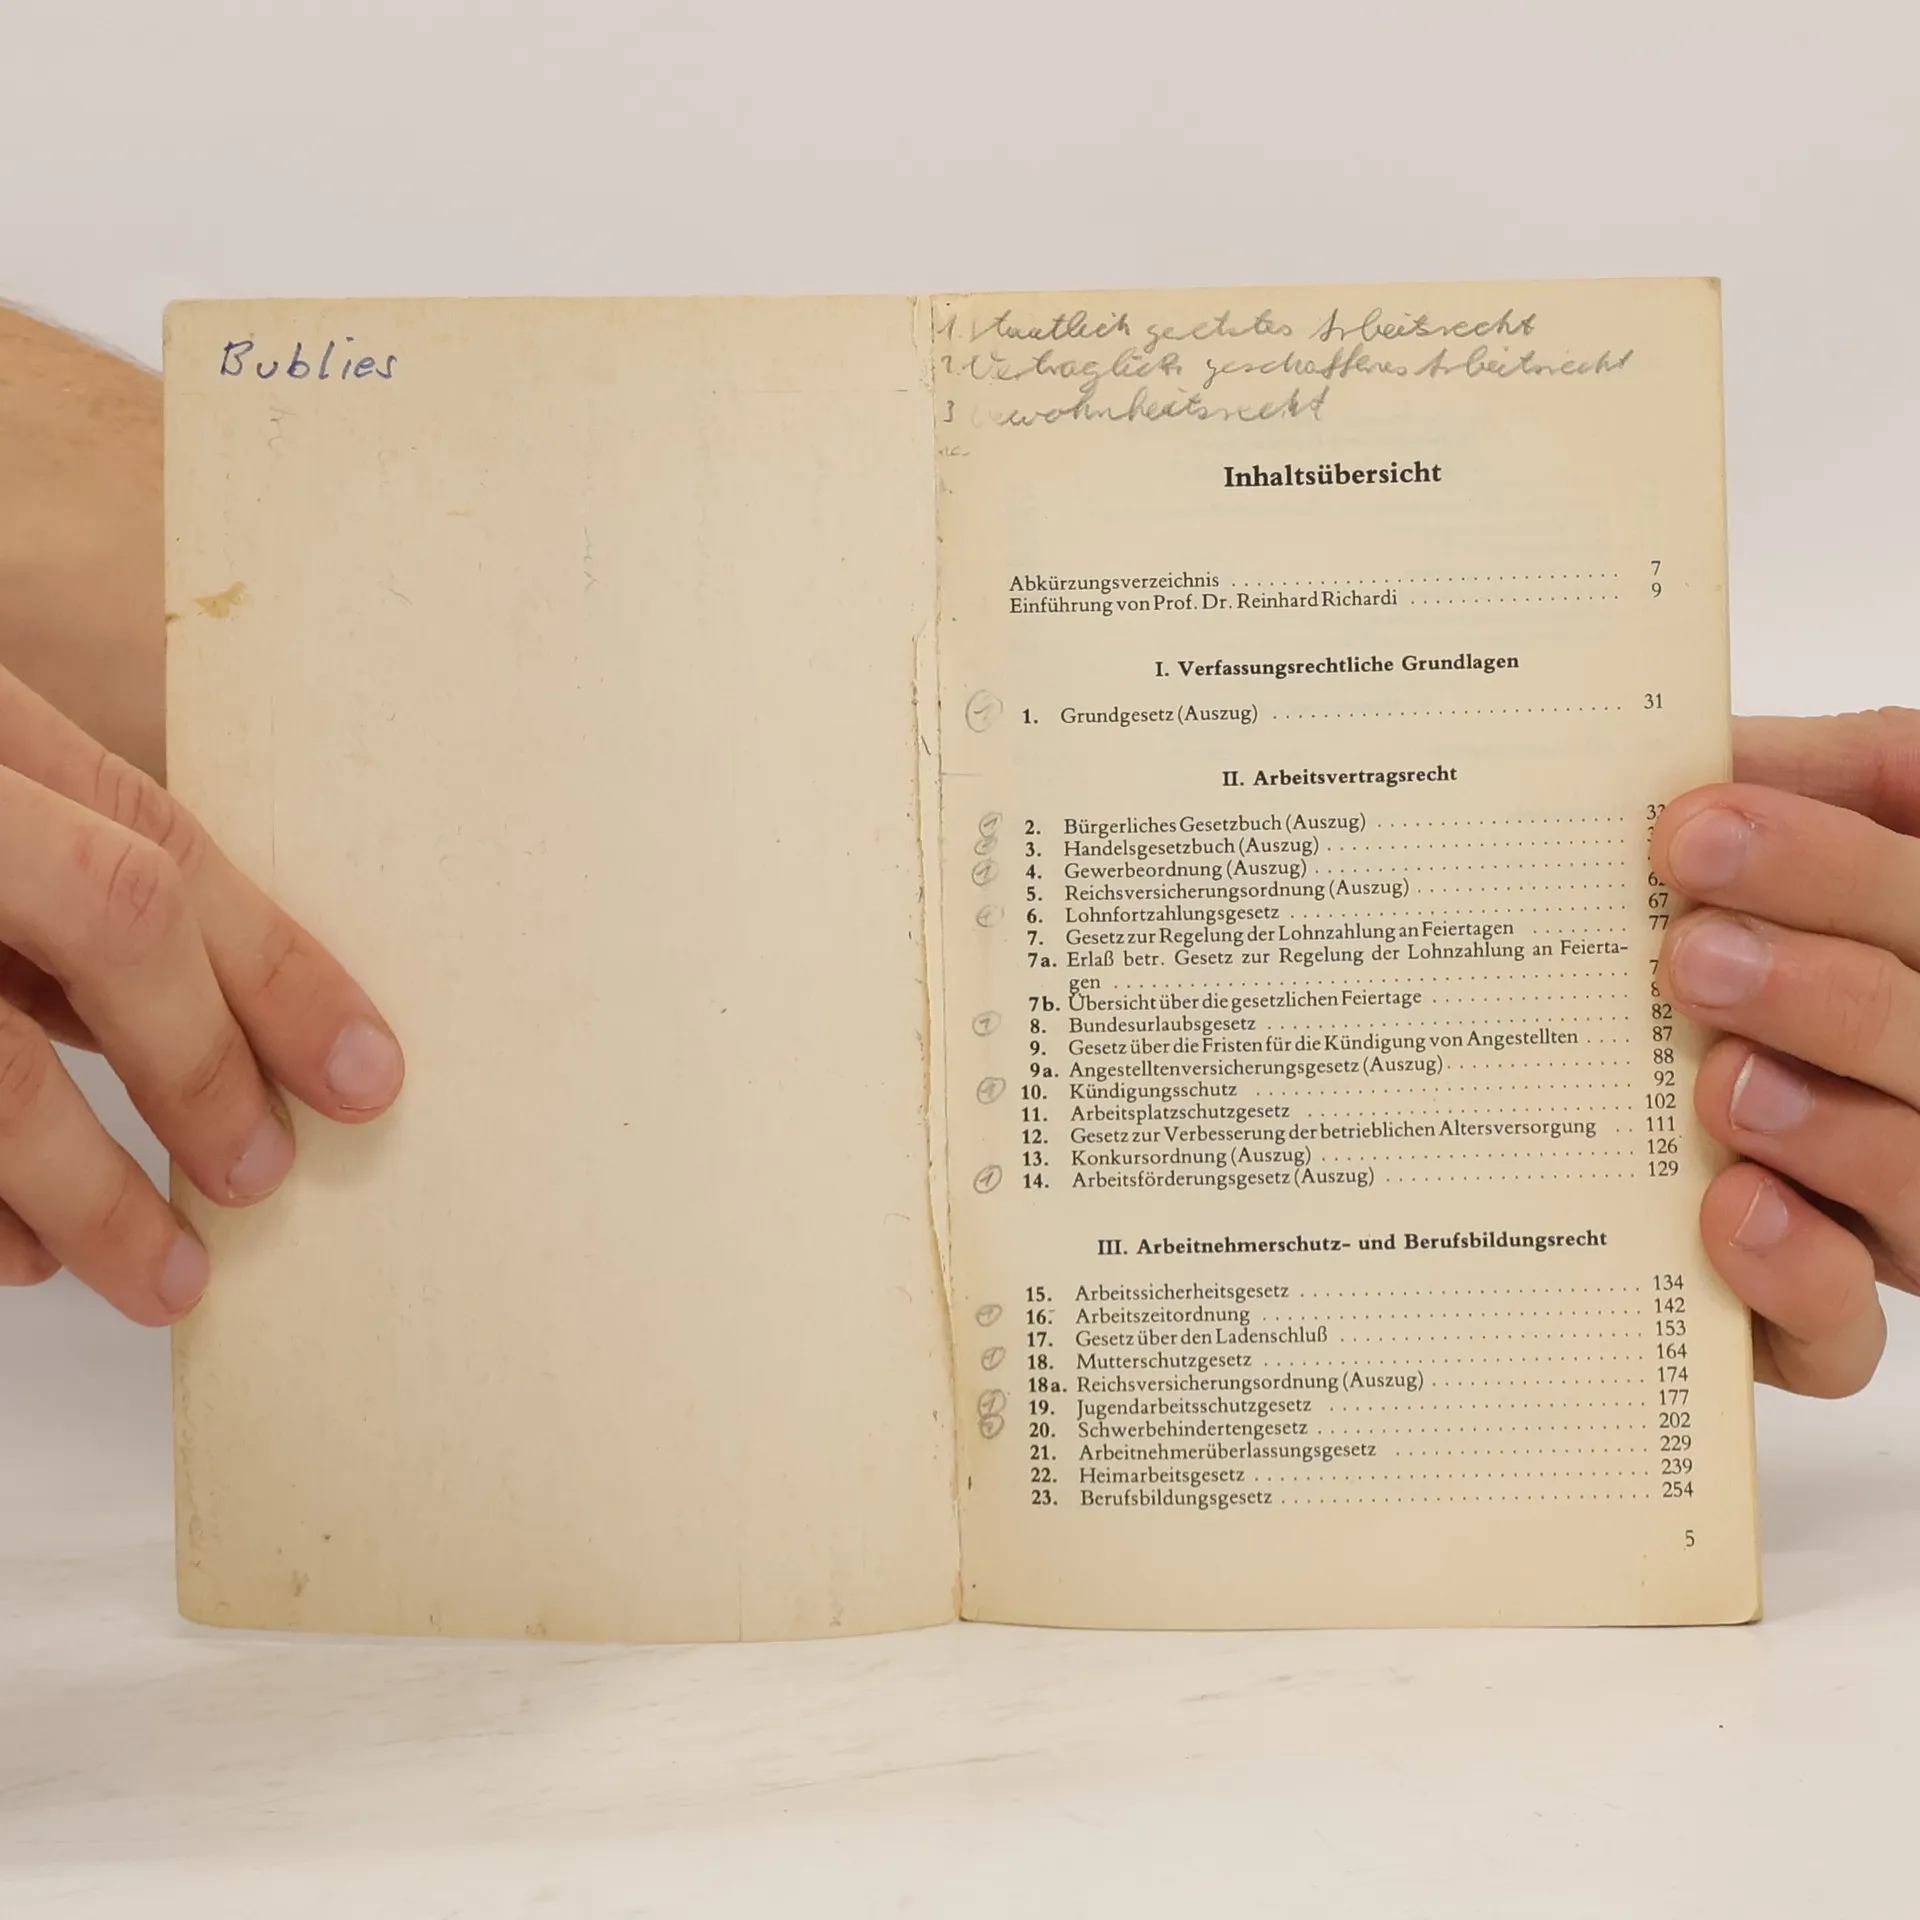 Bublies
1. staatlich gesetztes Arbeitsrecht
2. Vertraglich geschaffenes Arbeitsrecht
3 Gewohnheitsrecht
Inhaltsübersicht
Abkürzungsverzeichnis . . . . . . . . . . 7
Einführung von Prof. Dr. Reinhard Richardi . . . . . . . . . . 9
I. Verfassungsrechtliche Grundlagen
1 1. Grundgesetz (Auszug) . . . . . . . . . . 31
II. Arbeitsvertragsrecht
1 2. Bürgerliches Gesetzbuch (Auszug) . . . . . . . . . .
3. Handelsgesetzbuch (Auszug) . . . . . . . . . .
1 4. Gewerbeordnung (Auszug) . . . . . . . . . .
5. Reichsversicherungsordnung (Auszug) . . . . . . . . . .
1 6. Lohnfortzahlungsgesetz . . . . . . . . . . 67
7. Gesetz zur Regelung der Lohnzahlung an Feiertagen . . . . . . . . 77
7a. Erlaß betr. Gesetz zur Regelung der Lohnzahlung an Feierta-
gen . . . . . . . . . .
7b. Übersicht über die gesetzlichen Feiertage . . . . . . . . . .
1 8. Bundesurlaubsgesetz . . . . . . . . . . 82
9. Gesetz über die Fristen für die Kündigung von Angestellten . . . . 87
9a. Angestelltenversicherungsgesetz (Auszug) . . . . . . . . . . 88
1 10. Kündigungsschutz . . . . . . . . . . 92
11. Arbeitsplatzschutzgesetz . . . . . . . . . . 102
12. Gesetz zur Verbesserung der betrieblichen Altersversorgung . . 111
13. Konkursordnung (Auszug) . . . . . . . . . . 126
1 14. Arbeitsförderungsgesetz (Auszug) . . . . . . . . . . 129
III. Arbeitnehmerschutz- und Berufsbildungsrecht
15. Arbeitssicherheitsgesetz . . . . . . . . . . 134
1 16. Arbeitszeitordnung . . . . . . . . . . 142
17. Gesetz über den Ladenschluß . . . . . . . . . . 153
1 18. Mutterschutzgesetz . . . . . . . . . . 164
18a. Reichsversicherungsordnung (Auszug) . . . . . . . . . . 174
1 19. Jugendarbeitsschutzgesetz . . . . . . . . . . 177
20. Schwerbehindertengesetz . . . . . . . . . . 202
21. Arbeitnehmerüberlassungsgesetz . . . . . . . . . . 229
22. Heimarbeitsgesetz . . . . . . . . . . 239
23. Berufsbildungsgesetz . . . . . . . . . . 254
5